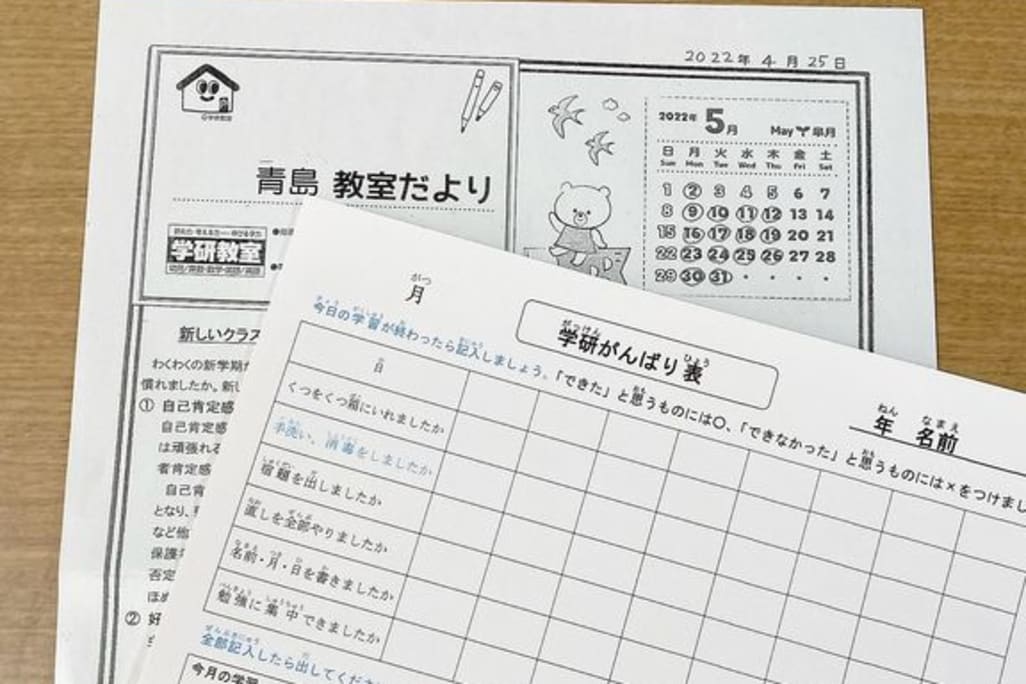 2022年 4月 25日
©学研教室
青島 教室だより
学研教室
2022年 5月 May 皐月
日 月 火 水 木 金 土
Sun Mon Tue Wed Thu Fri Sat
1 2 3 4 5 6 7
8 9 10 11 12 13 14
15 16 17 18 19 20 21
22 23 24 25 26 27 28
29 30 31
新しいクラス
わくわくの新学期が
慣れましたか。新し
① 自己肯定感
自己肯定感
は頑張れる
者肯定感
自己肯
となり、
など他
保護
否定
ほめ
② 好
がつ
月
がっけん ひょう
学研がんばり表
ねん なまえ
年 名前
今日の学習が終わったら記入しましょう。「できた」と思うものには○、「できなかった」と思うものには×をつけまし
日
くつをくつ箱にいれましたか
手洗い、消毒をしましたか
宿題を出しましたか
直しを全部やりましたか
名前・月・日を書きましたか
勉強に集中できましたか
全部記入したら出してくださ
今月の学習